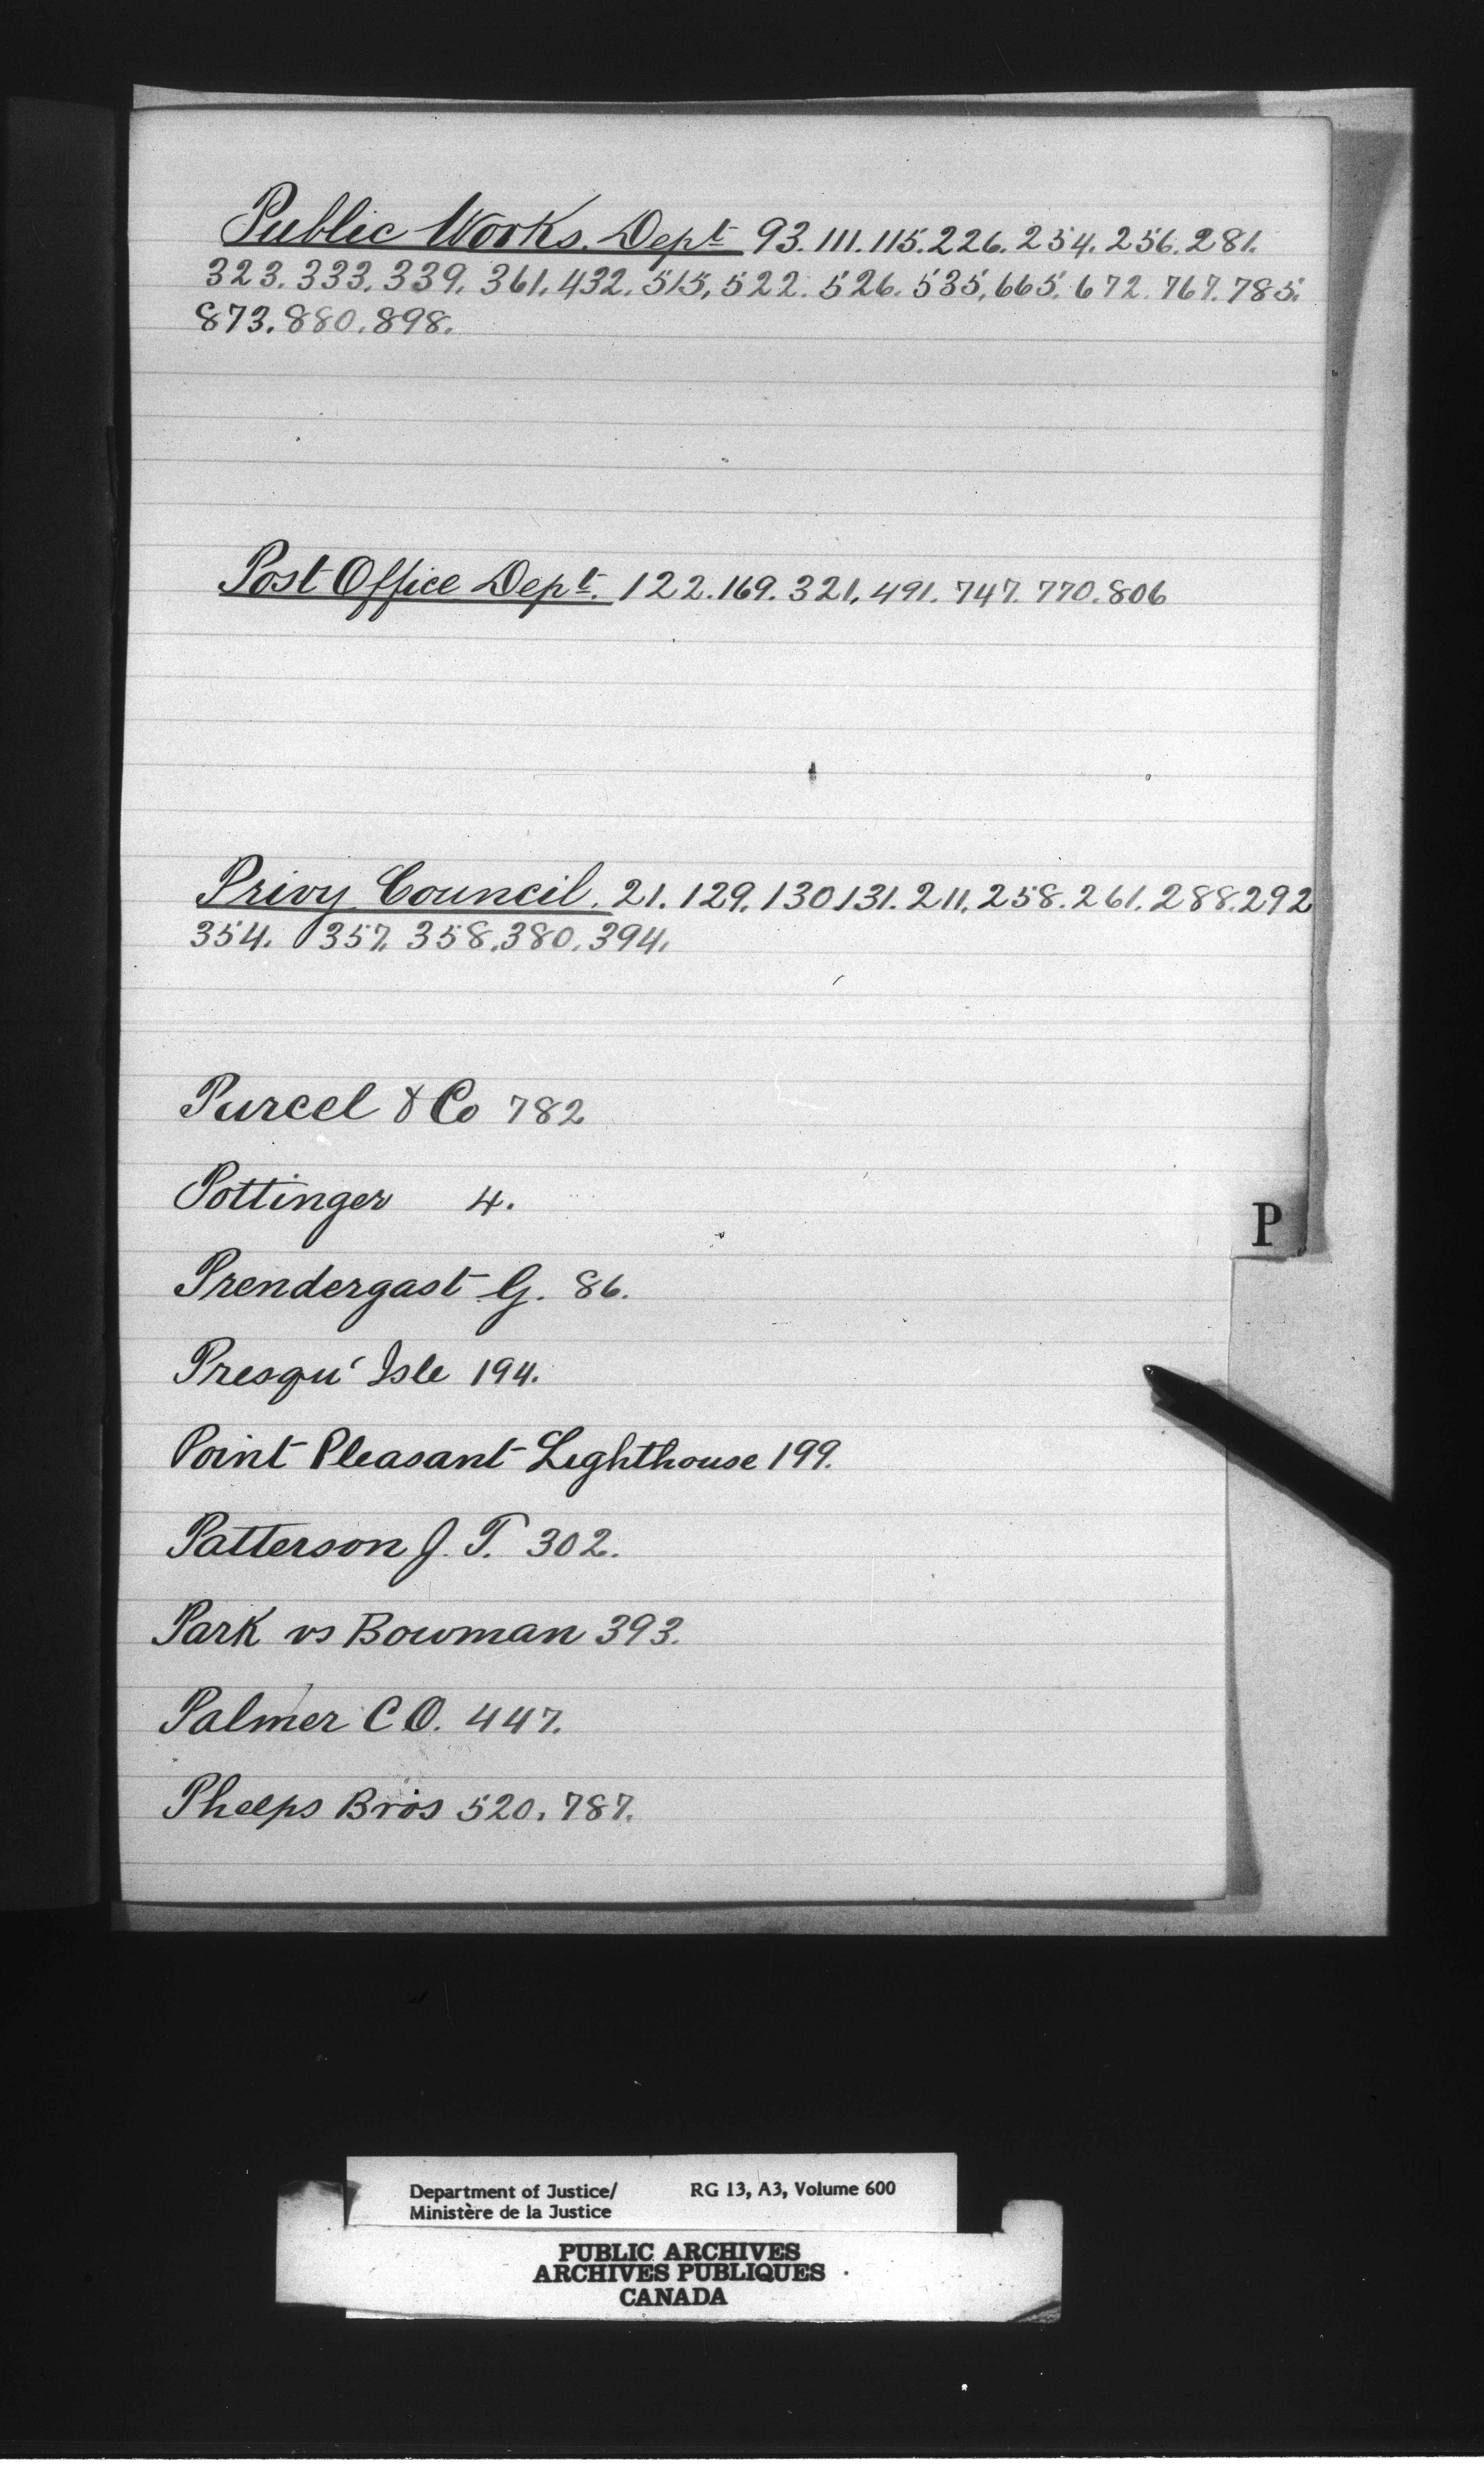 Public Works. Dept 93. 111. 115. 226. 254. 256. 281.
323. 333. 339. 361. 432. 515, 522. 526. 535, 665. 672. 767. 785.
873. 880. 898.
Post Office Dept. 122. 169. 321, 491. 747. 770. 806
Privy Council. 21. 129. 130 131. 211, 258. 261. 288. 292
354. 357. 358. 380. 394.
Purcel & Co 782
Pottinger 4.
P
Prendergast G. 86.
Presqu' Isle 194.
Point Pleasant Lighthouse 199.
Patterson J. T. 302.
Park vs Bowman 393.
Palmer C O. 447.
Phelps Bros 520, 787.
Department of Justice/ RG 13, A3, Volume 600
Ministère de la Justice
PUBLIC ARCHIVES
ARCHIVES PUBLIQUES
CANADA